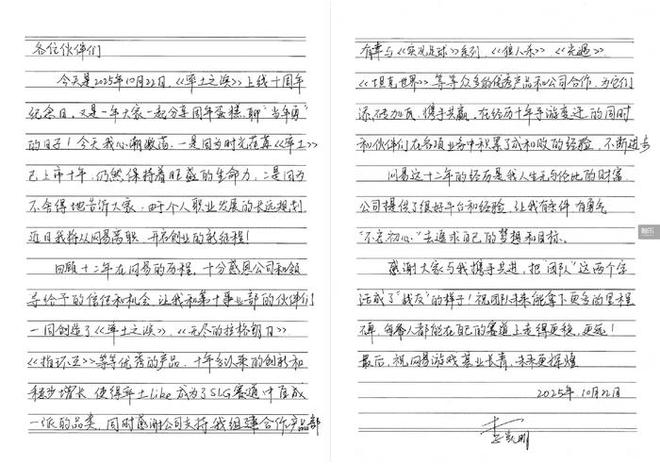 各位伙伴们
今天是2025年10月22日，《率土之滨》上线十周年
纪念日，又是一年大家一起分享周年蛋糕，聊"当年勇"
的日子！今天我心潮澎湃，一是因为时光荏苒《率土》
已上市十年，仍然保持着旺盛的生命力，二是因为
不舍得地告诉大家，由于个人职业发展的长远规划，
近日我将从网易离职，开启创业的新征程！
回顾十二年在网易的历程，十分感恩公司和领
导给予的信任和机会，让我和第十事业部的伙伴们
一同创造了《率土之滨》、《无尽的拉格朗日》
《指环王》等等优秀的产品，十年多以来的创新和
稳步增长，使得率土like成为了SLG赛道中自成
一派的品类，同时感谢公司支持我组建合作产品部
有幸与《实况足球》系列、《狼人杀》《光遇》
《坦克世界》等等众多的优秀产品和公司合作，为它们
添砖加瓦，携手共赢。在经历十年手游变迁的同时
和伙伴们在各项业务中积累了成和败的经验，不断进步
网易这十二年的经历是我人生无与伦比的财富
公司提供了很好平台和经验，让我有条件有勇气
"不忘初心"去追求自己的梦想和目标。
感谢大家与我携手共进，把"团队"这两个字
活成了"战友"的样子！祝团队未来能拿下更多的里程
碑，每个人都能在自己的赛道上走得更稳，更远！
最后，祝网易游戏基业长青，未来更辉煌
2025年10月22日
李凯明